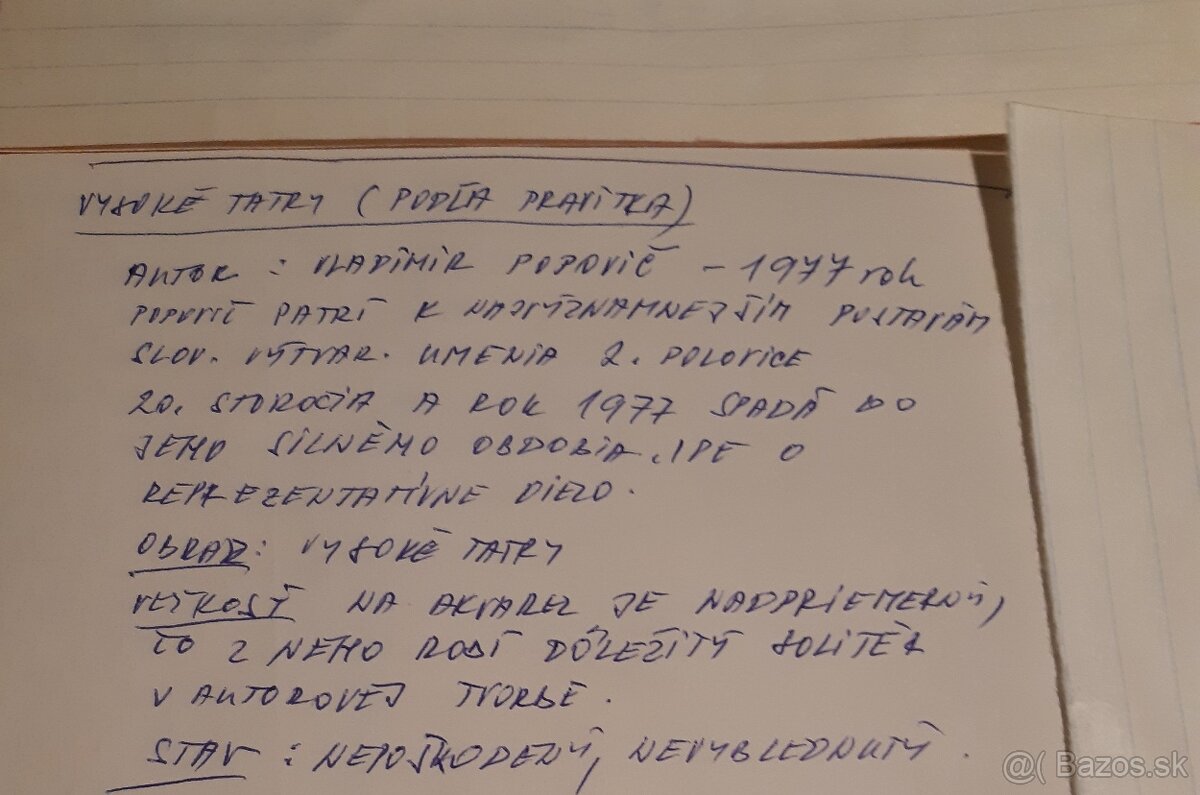 VYSOKÉ TATRY (PODĽA PRAVÍTKA)
AUTOR : VLADIMÍR POPOVIČ – 1977 rok
POPOVIČ PATRÍ K NAJVÍZNAMNEJŠÍM POSTAVÁM
SLOV. VÝTVAR. UMENIA 2. POLOVICE
20. STOROČIA A ROK 1977 SPADÁ DO
JEHO SILNÉHO OBDOBIA. IDE O
REPREZENTATÍVNE DIELO.
OBRAZ: VYSOKÉ TATRY
VEĽKOSŤ NA AKVAREL JE NADPRIEMERNÝ,
ČO Z NEHO ROBÍ DÔLEŽITÝ SOLITÉR
V AUTOROVEJ TVORBE.
STAV : NEPOŠKODENÝ, NEVYBLEDNUTÝ.
@( Bazos.sk